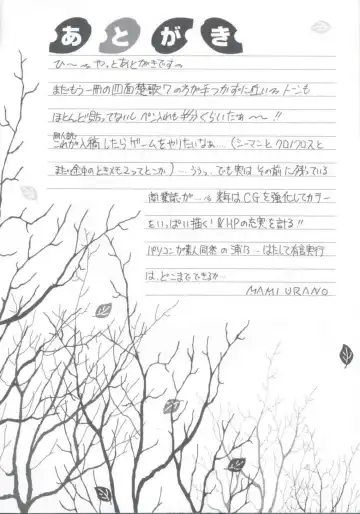 あとがき
ひ〜っや、とあとがきです〜
またもう一冊の四面楚歌7の方が手つかずに近い〜トーンも
ほとんど貼ってないしペン入れも半分くらいだぁ〜〜!!
無事
これが入稿したらゲームをやりたいなぁ…(シーマンとクロノクロスと
まだ途中のときメモ2ってとこか)…ううっ…でも実はその前に残っている
商業誌が…。来年はCGを強化してカラー
をいっぱい描く!&HPの充実を計る!!
パソコンが素人同然の浦乃…はたして有言実行
は、どこまでできるか…
MAMI URANO